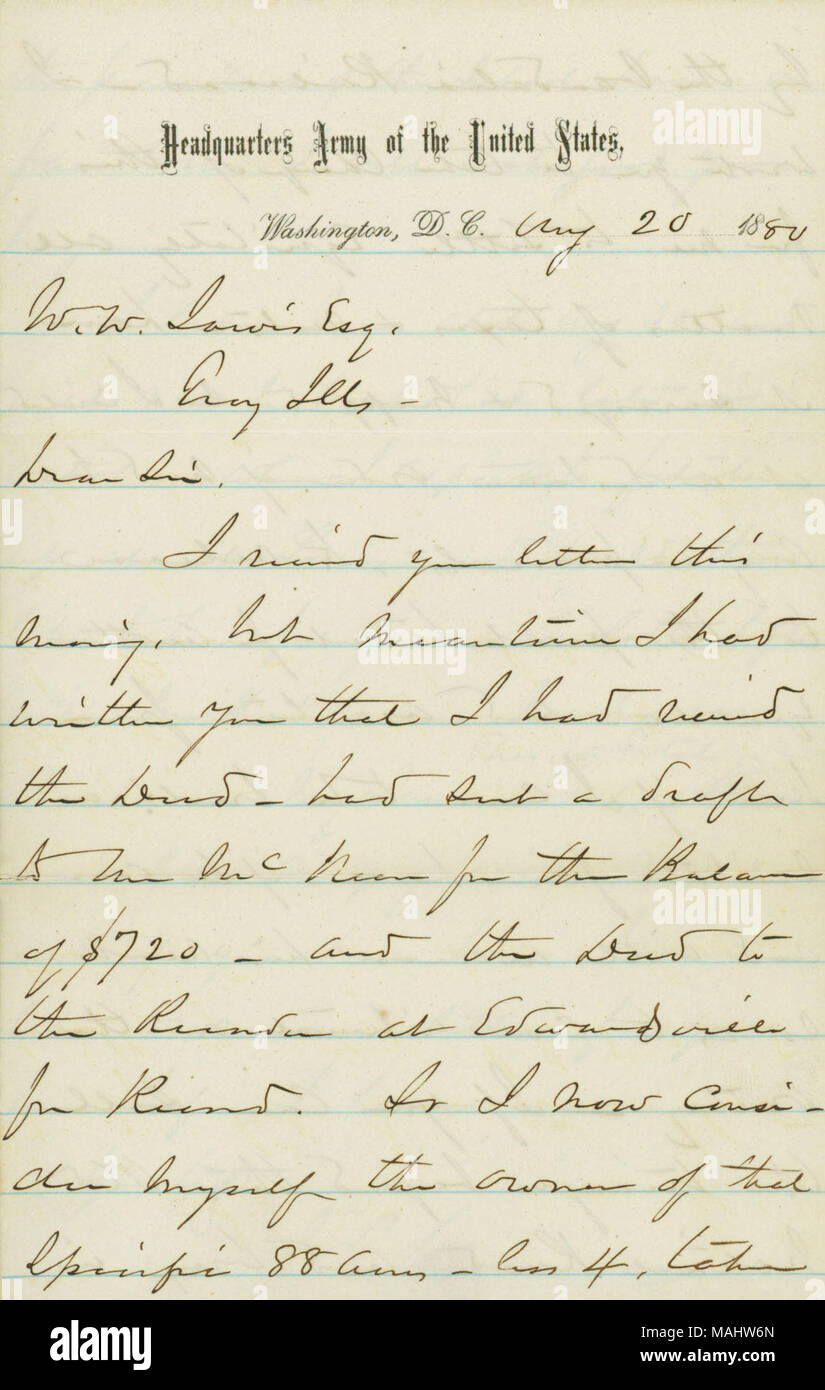 Headquarters Army of the United States,
Washington, D. C. Aug 20 1880
W. W. Jarvis Esq.
Troy Ills -
Dear Sir.
I received your letter this
morning, but meantime I had
written you that I had received
the Deed - had sent a draft
to Mr Mc Kean for the Balance
of $720 - and the Deed to
the Recorder at Edwardsville
for Record. So I now consi-
der myself the owner of that
Specific 88 acres - less 4, taken
alamy
Image ID: MAHW6N
www.alamy.com